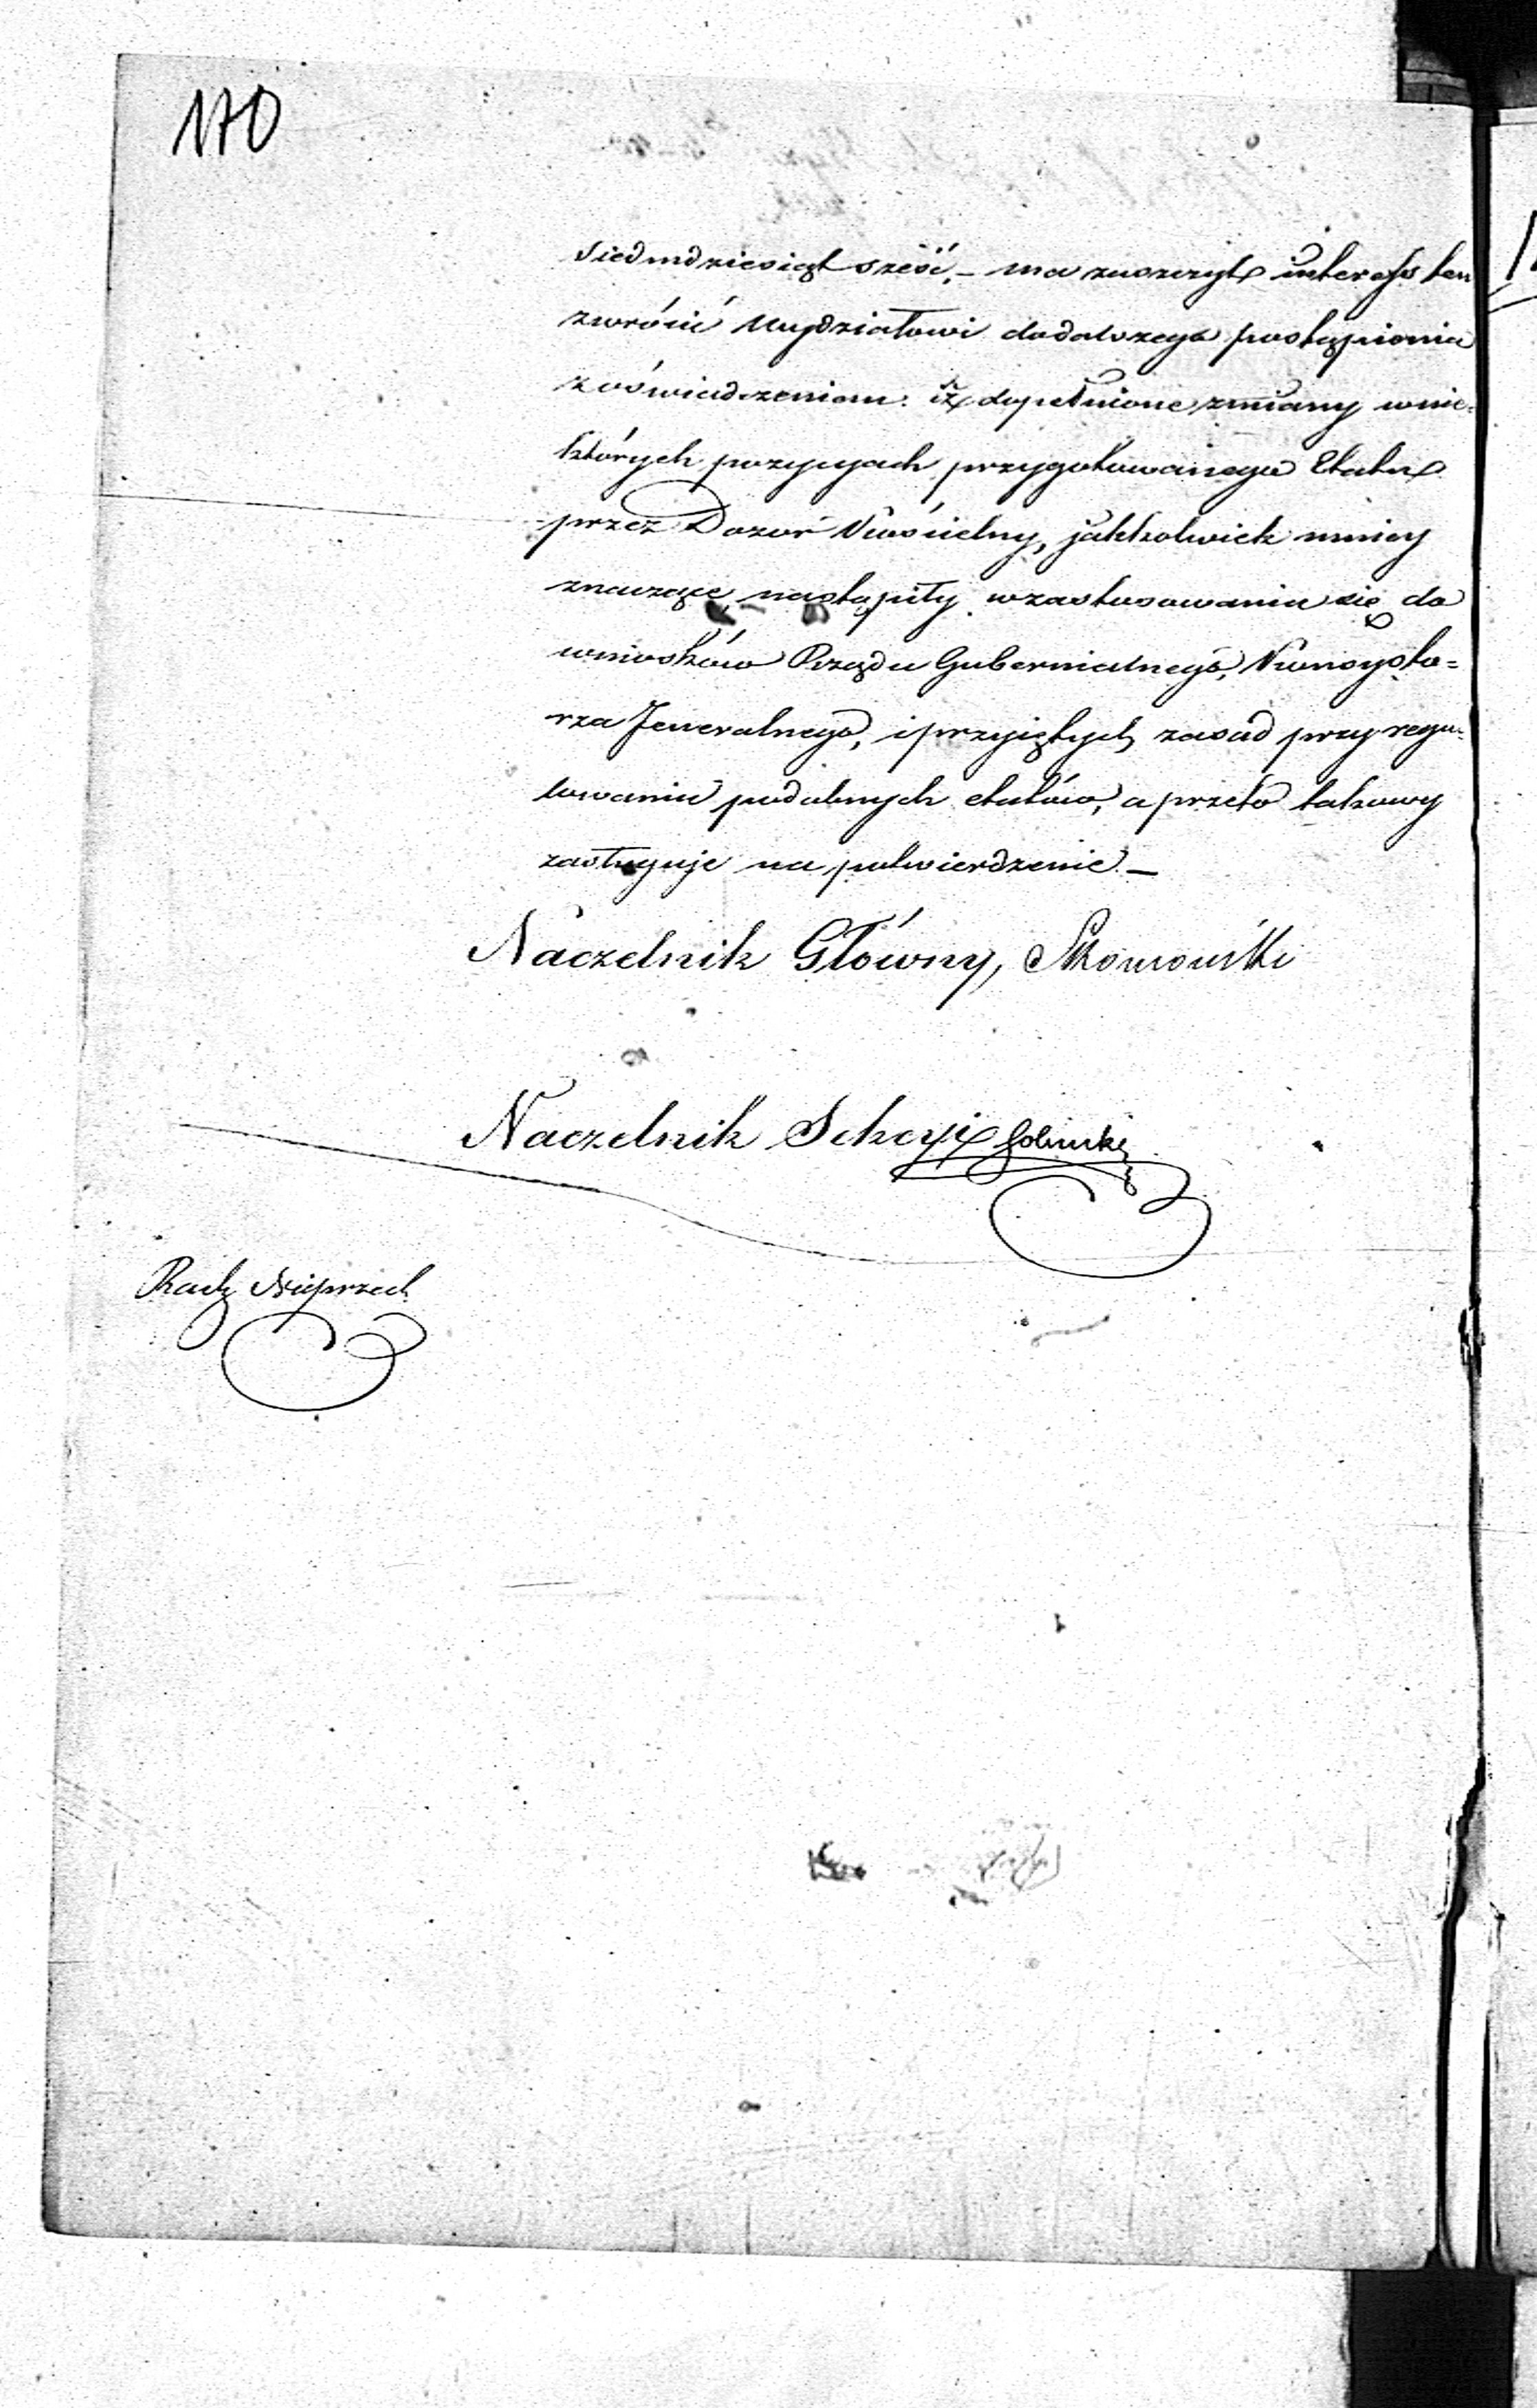 170
Siedmdziesiąt sześć, – ma zaszczyt interess ten
zwrócić Wydziałowi do dalszego postąpienia
z oświadczeniem: iż dopełnione zmiany w nie-
których pozycyach przygotowanego Etatu
przez Dozór Kościelny, jakkolwiek mniey
znaczące nastąpiły w zastosowaniu się do
wniosków Rządu Gubernialnego, Konsysto=
rza Jeneralnego, i przyiętych zasad przy regu-
lowaniu podobnych etatów, a przeto takowy
zasługuje na potwierdzenie. –
Naczelnik Główny,
Naczelnik Sekcyi